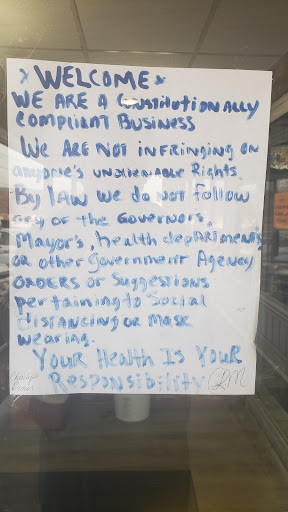 x WELCOME x
WE ARE A Constitutionally
COMPLIANT BUSINESS
WE ARE NOT INFRINGING ON
anyone's UNALIENABLE Rights.
By LAW We do Not Follow
any of the Governors,
Mayor's, health depARtments
OR other Government Agency
ORDERS or Suggestions
pertaining to Social
distancing or mask
wearing.
YOUR Health Is YOUR
Responsibility